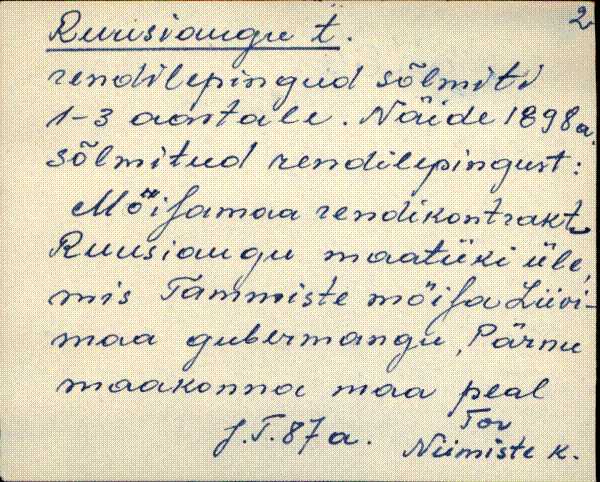 2
Ruusiaugu t.
rendilepingud sõlmiti
1-3 aastale. Näide 1898a.
sõlmitud rendilepingust:
Mõisamaa rendikontrakt
Ruusiaugu maatüki üle,
mis Tammiste mõisa Liivi-
maa gubermangu, Pärnu
maakonna maa peal
J.T.87a. Tor
Niimiste k.